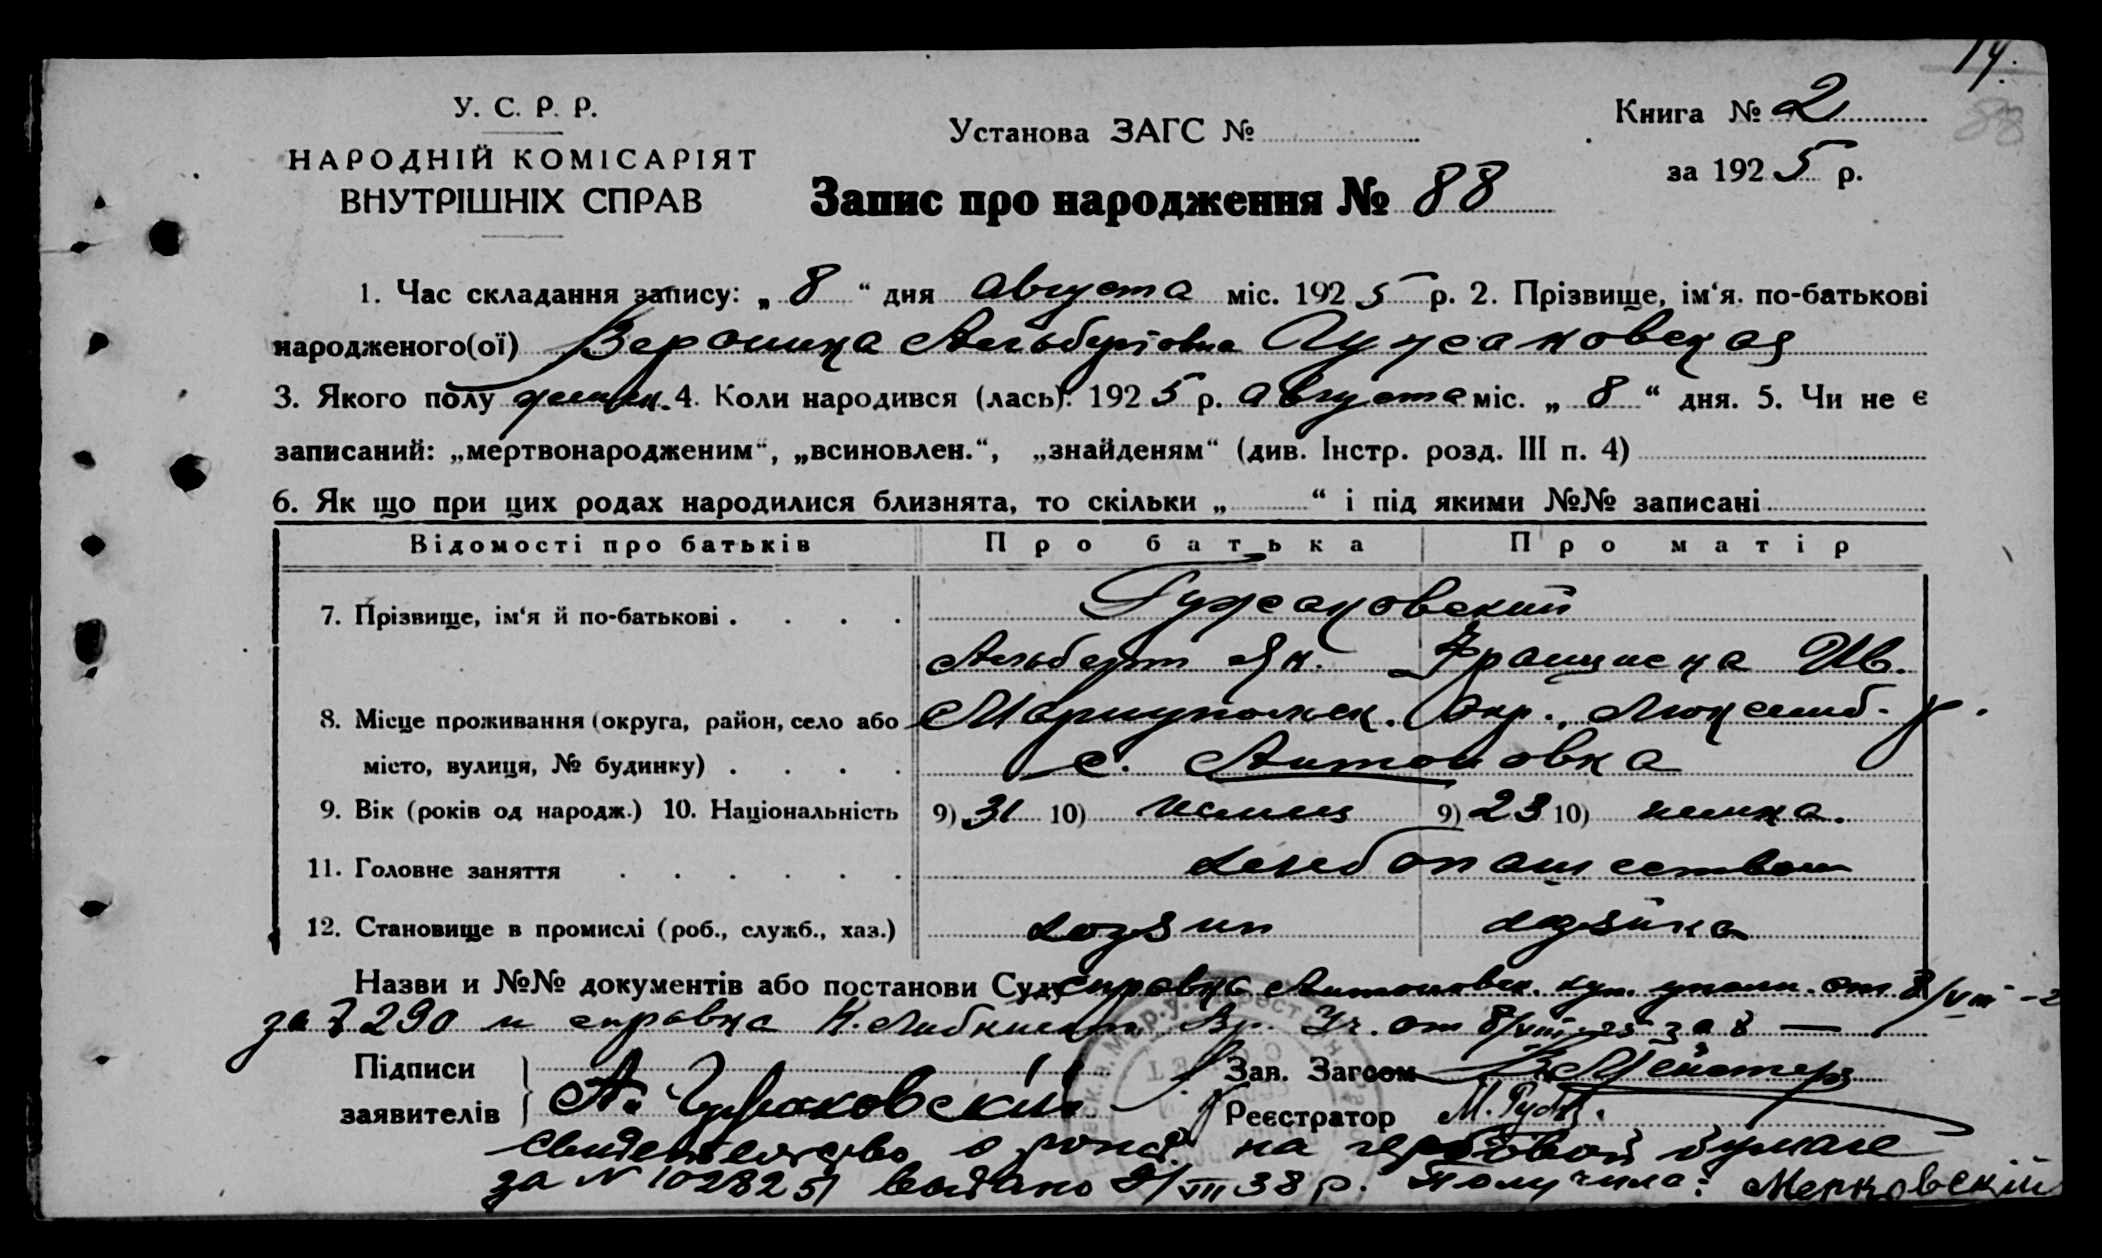 14.
88
У. С. Р. Р.
НАРОДНІЙ КОМІСАРІЯТ
ВНУТРІШНІХ СПРАВ
Установа ЗАГС №
Книга № 2
за 1925 р.
Запис про народження № 88
1. Час складання запису: „ 8 “ дня августа міс. 1925 р. 2. Прізвище, ім‘я. по-батькові
народженого(ої) Вероника Альбертовна
3. Якого полу женск. 4. Коли народився (лась): 1925 р. августа міс. „ 8 “ дня. 5. Чи не є
записаний: „мертвонародженим“, „всиновлен.“, „знайденям“ (див. Інстр. розд. III п. 4)
6. Як що при цих родах народилися близнята, то скільки „ “ і під якими №№ записані
Відомості про батьків Про батька Про матір
7. Прізвище, ім‘я й по-батькові .
Альберт Як. Франциска Ив.
8. Місце проживання (округа, район, село або Мариупольск. Окр., Люксемб. р.
місто, вулиця, № будинку) . с. Антоновка
9. Вік (років од народж.) 10. Національність 9) 31 10) немец 9) 23 10) немка.
11. Головне заняття хлебопашеством
12. Становище в промислі (роб., служб., хаз.) хозяин хозяйка
Назви и №№ документів або постанови Суду справка Антоновск. уполн. от 8/VIII-2
за № 290 и справка Вр. Уч. от 8/VIII-25 за №
Підписи
заявителів А.
Зав. Загсом
Реєстратор М.
Свидетельство о рожд. на гербовой бумаге
за № 1028251 выдано 9/VII 38 р. Получила: Мерковскій